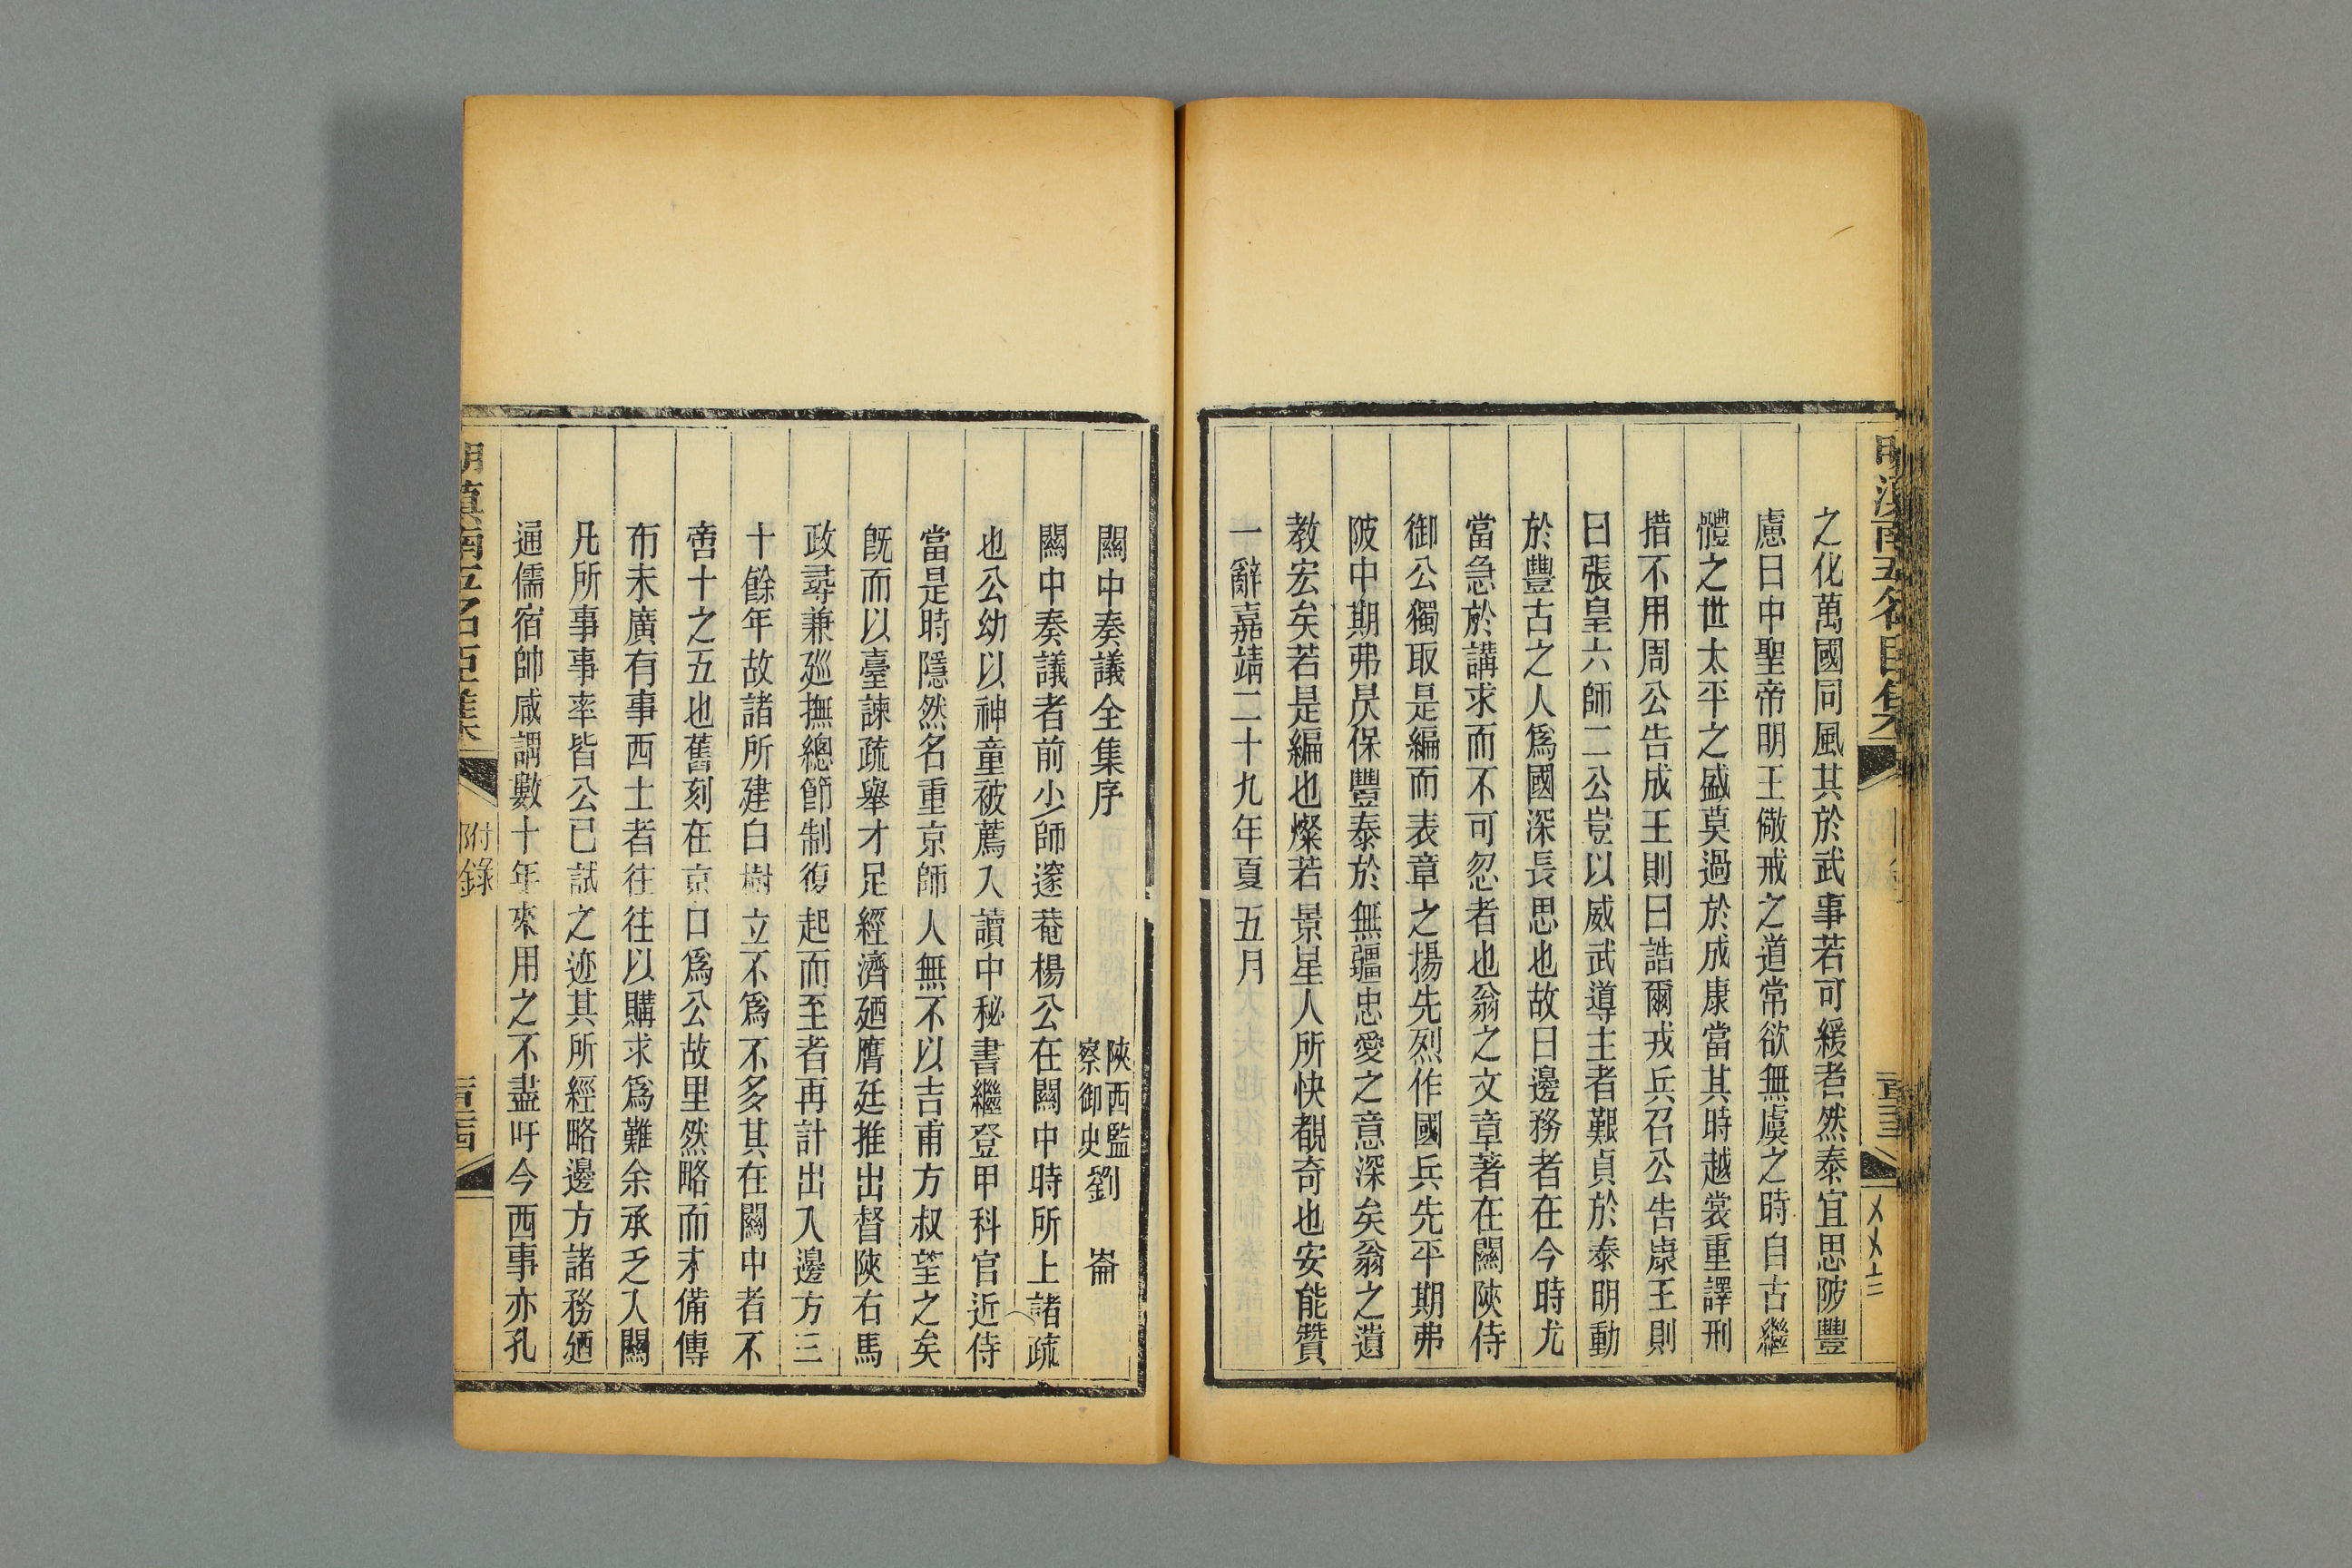 之化萬國同風其於武事若可緩者然泰宜思陂豐
慮日中聖帝明王儆戒之道常欲無虞之時自古繼
體之世太平之盛莫過於成康當其時越裳重譯刑
措不用周公告成王則曰誥爾戎兵召公告康王則
曰張皇六師二公豈以威武導主者艱貞於泰明動
於豐古之人爲國深長思也故曰邊務者在今時尤
當急於講求而不可忽者也翁之文章著在關陝侍
御公獨取是編而表章之揚先烈作國兵先平期弗
陂中期弗昃保豐泰於無疆忠愛之意深矣翁之遺
教宏矣若是編也燦若景星人所快覩奇也安能贊
一辭嘉靖二十九年夏五月
關中奏議全集序
陝西監察御史劉崙
關中奏議者前少師邃菴楊公在關中時所上諸疏
也公幼以神童被薦入讀中秘書繼登甲科官近侍
當是時隱然名重京師人無不以吉甫方叔望之矣
旣而以臺諫疏舉才足經濟廼膺廷推出督陝右馬
政尋兼廵撫總節制復起而至者再計出入邊方三
十餘年故諸所建白樹立不爲不多其在關中者不
啻十之五也舊刻在京口爲公故里然略而未備傳
布未廣有事西土者往往以購求爲難余承乏入關
凡所事事率皆公已試之迹其所經略邊方諸務廼
通儒宿帥咸謂數十年來用之不盡吁今西事亦孔
明滇南五名臣集
附錄